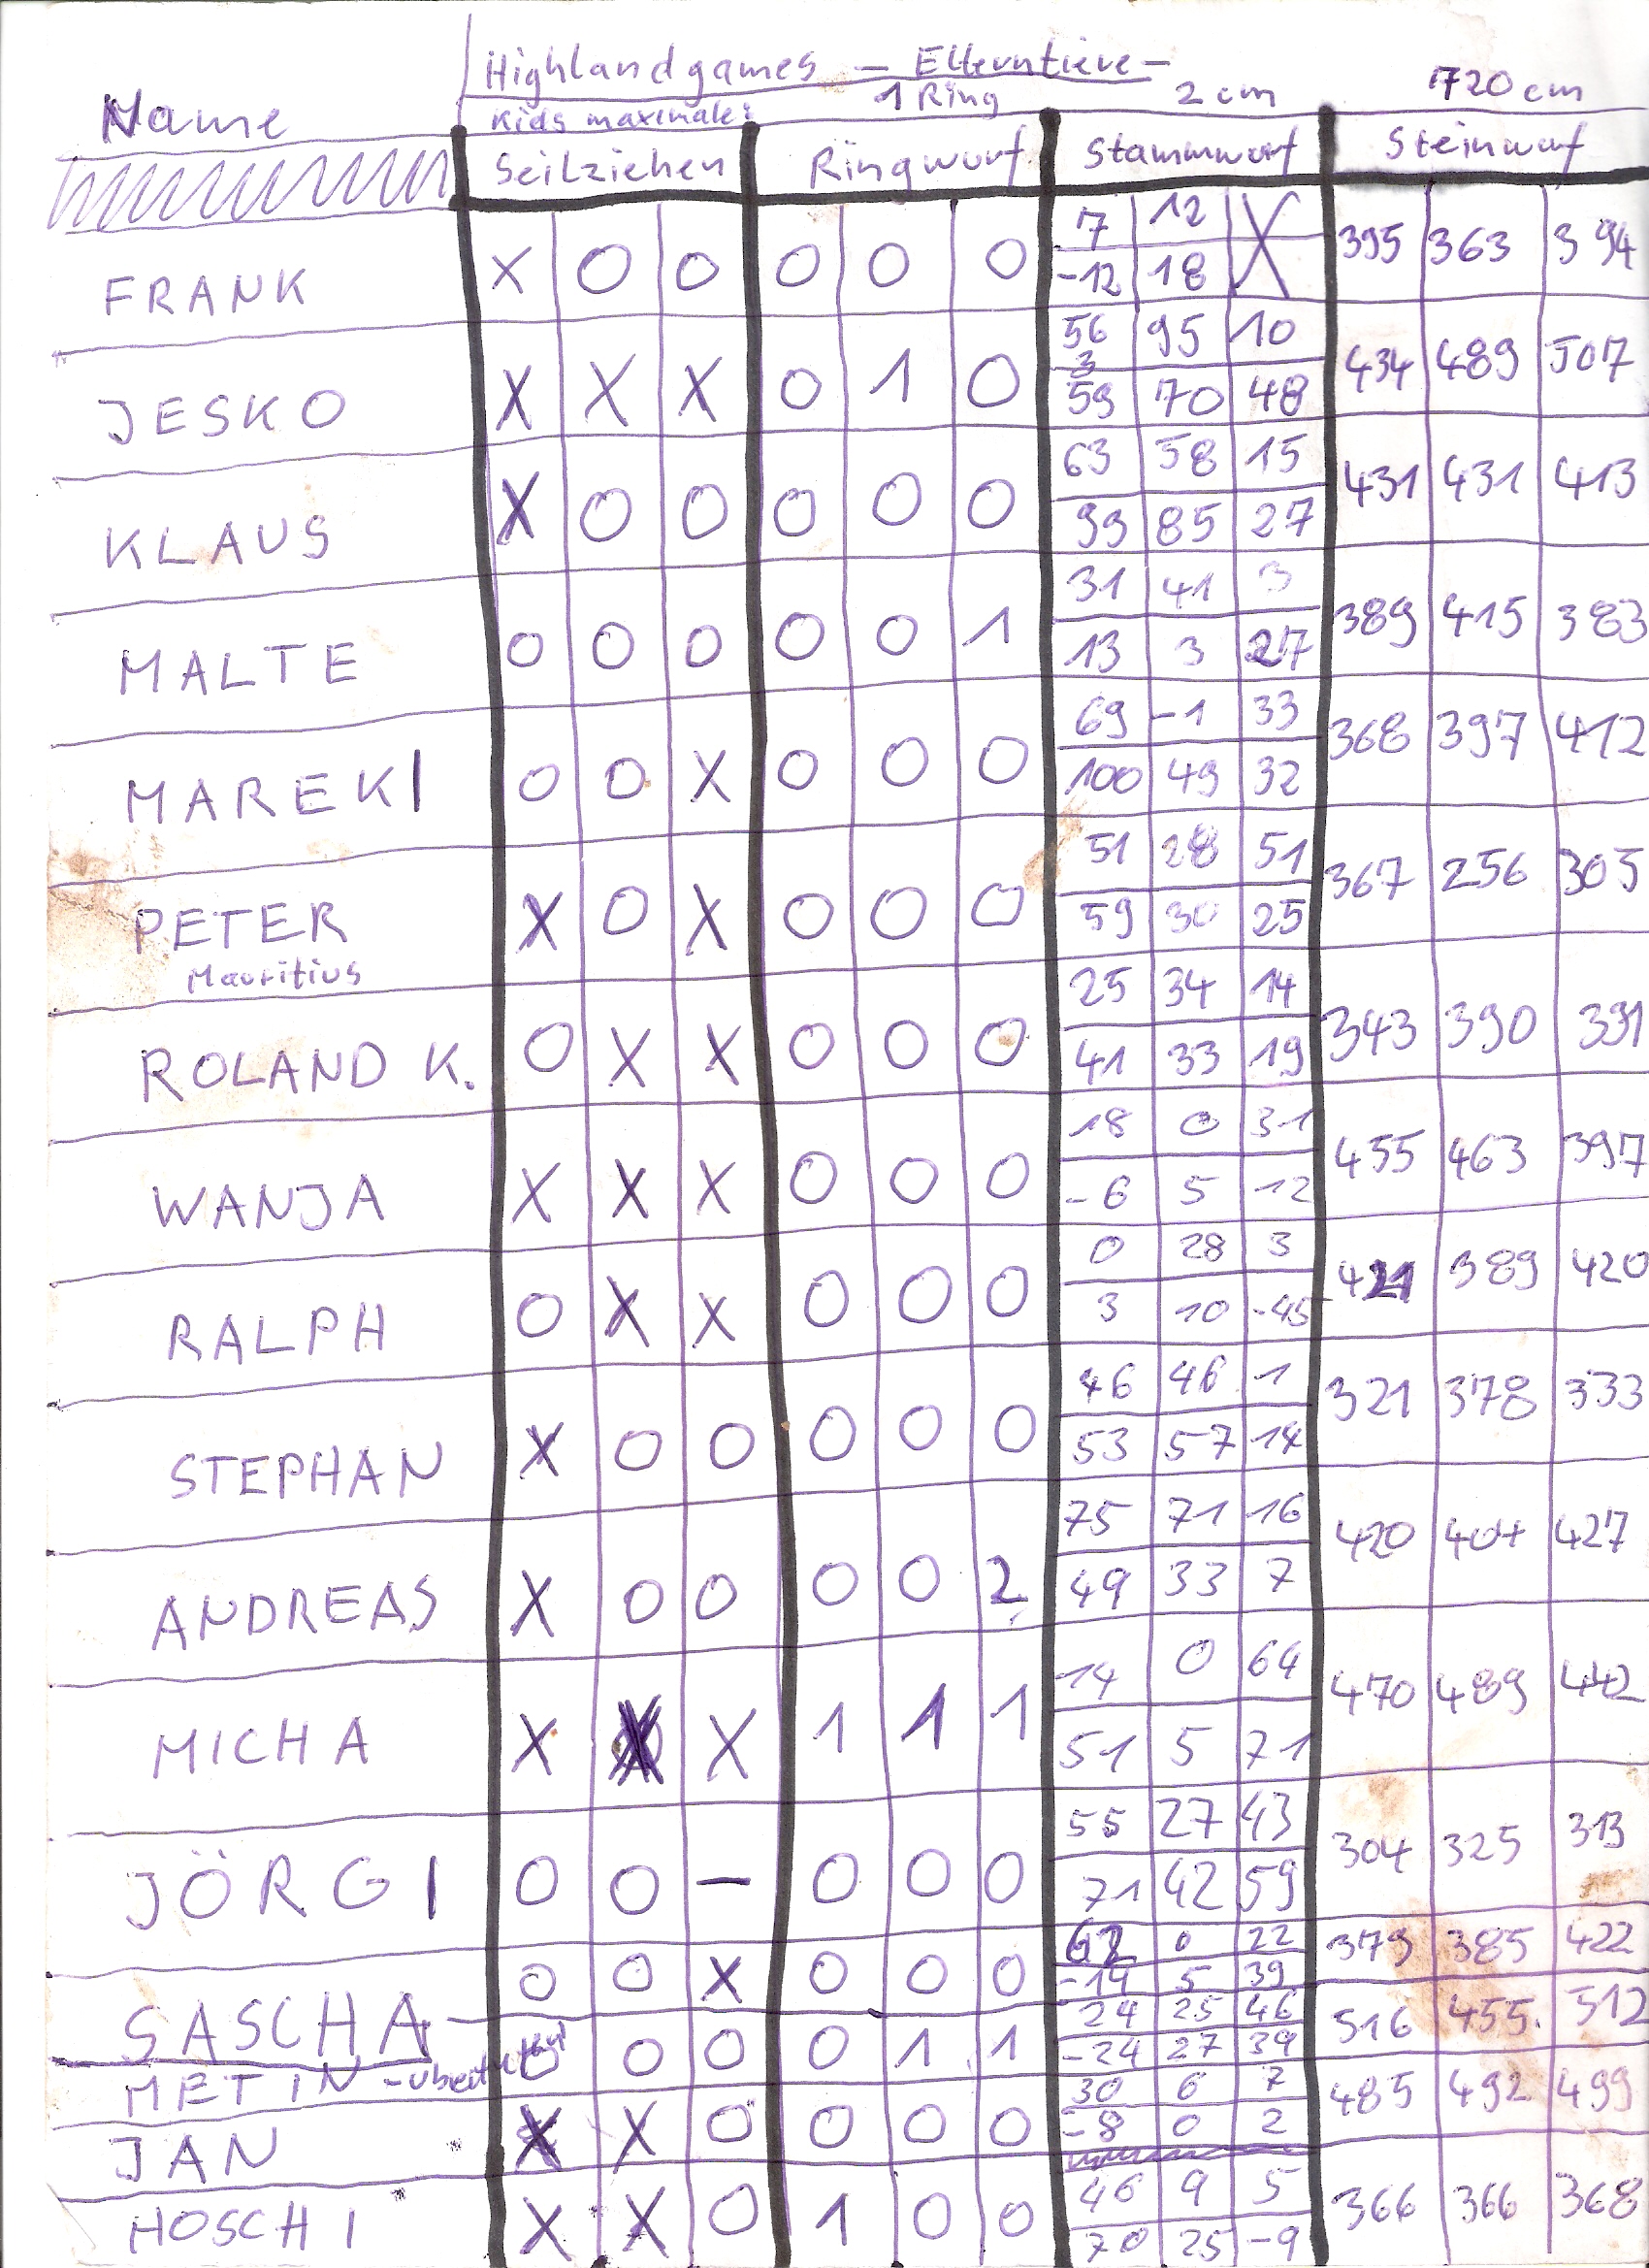 Highlandgames – Elterntiere –
Name Kids maximale: 1 Ring 2 cm 720 cm
Seilziehen Ringwurf Stammwurf Steinwurf
7 12 X
FRANK X O O O O O 395 363 394
-12 18
56 95 10
3
JESKO X X X O 1 O 434 489 507
59 70 48
63 58 15
KLAUS X O O O O O 431 431 413
99 85 27
31 41 3
MALTE O O O O O 1 389 415 383
13 3 27
69 -1 33
MAREK I O O X O O O 368 397 412
100 49 32
51 28 51
PETER X O X O O O 367 256 305
59 30 25
Mauritius
25 34 14
ROLAND K. O X X O O O 343 390 391
41 33 19
18 0 31
WANJA X X X O O O 455 463 397
-6 5 12
0 28 3
RALPH O X X O O O 421 389 420
3 10 -45
46 46 1
STEPHAN X O O O O O 321 378 333
53 57 14
75 71 16
ANDREAS X O O O O 2 420 404 427
49 33 7
14 0 64
MICHA X X X 1 1 1 470 489 442
51 5 71
55 27 43
JÖRG I O O – O O O 304 325 313
71 42 59
62 0 22
SASCHA O O X O O O 379 385 422
-14 5 39
24 25 46
METIN O O O O 1 1 516 455. 512
-24 27 39
30 6 7
JAN X X O O O O 485 492 499
-8 0 2
46 9 5
HOSCHI X X O 1 O O 366 366 368
70 25 -9